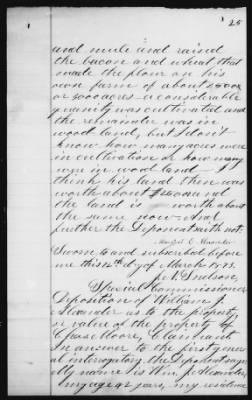 25
and mule and raised
the bacon and wheat that
made the flour on his
own farm of about
or 3000 acres a considerable
quantity was cultivated and
the remainder was in
wood land, but I don't
know how many acres were
in cultivation or how many
were in wood land — I
think his land there was
worth about and
the land is worth about
the same now — And
further the Deponent saith not.
E. Alexander
Sworn to and subscribed before
me this 14th day of March 1873.
Snelson,
Special Commissioner
Deposition of William J.
Alexander as to the property
or value of the property of
Moore, Claimant
In answer to the first gener
al interrogatory the Deponent says
My name is Wm. J. Alexander,
my age years, my residence